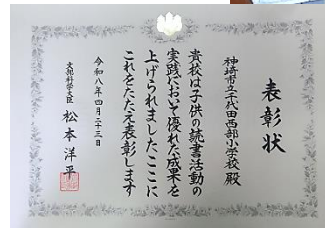 表彰状
神埼市立千代田西部小学校 殿
貴校は子供の読書活動の
実践において優れた成果を
上げられましたここに
これをたたえ表彰します
令和八年四月二十三日
文部科学大臣 松本洋平